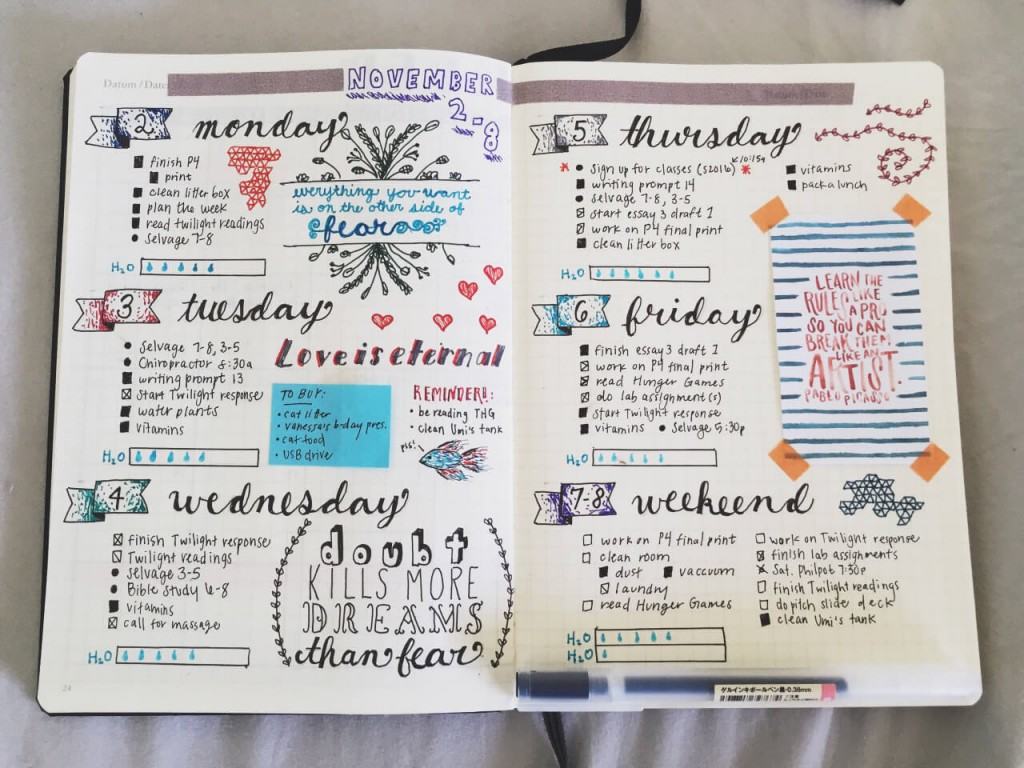 Datum / Date:
NOVEMBER
2-8
2 monday
finish P4
print
clean litter box
plan the week
read twilight readings
Selvage 7-8
H2O
everything you want
is on the other side of
fear
3 tuesday
Selvage 7-8, 3-5
Chiropractor 8:30a
writing prompt 13
Start Twilight response
water plants
vitamins
H2O
Love is eternal
TO BUY:
cat litter
vanessa's b-day pres.
cat food
USB drive
REMINDER!!:
be reading THG
clean Umi's tank
pss!
4 wednesday
finish Twilight response
Twilight readings
Selvage 3-5
Bible Study 6-8
vitamins
call for massage
H2O
doubt
KILLS MORE
DREAMS
than fear
24
5 thursday
Sign up for classes (S2016)
writing prompt 14
Selvage 7-8, 3-5
start essay 3 draft 1
work on P4 final print
clean litter box
vitamins
pack a lunch
H2O
LEARN THE
RULES LIKE
A PRO
SO YOU CAN
BREAK THEM
LIKE AN
ARTIST.
PABLO PICASSO
6 friday
finish essay 3 draft 1
work on P4 final print
read Hunger Games
do lab assignment(s)
start Twilight response
vitamins Selvage 5:30p
H2O
7-8 weekeend
work on P4 final print
clean room
dust vaccuum
laundry
read Hunger Games
H2O
H2O
work on Twilight response
finish lab assignments
Sat. Philpot 7:30p
finish Twilight readings
do pitch slide deck
clean Umi's tank
ゲルインキボールペン黒・0.38mm